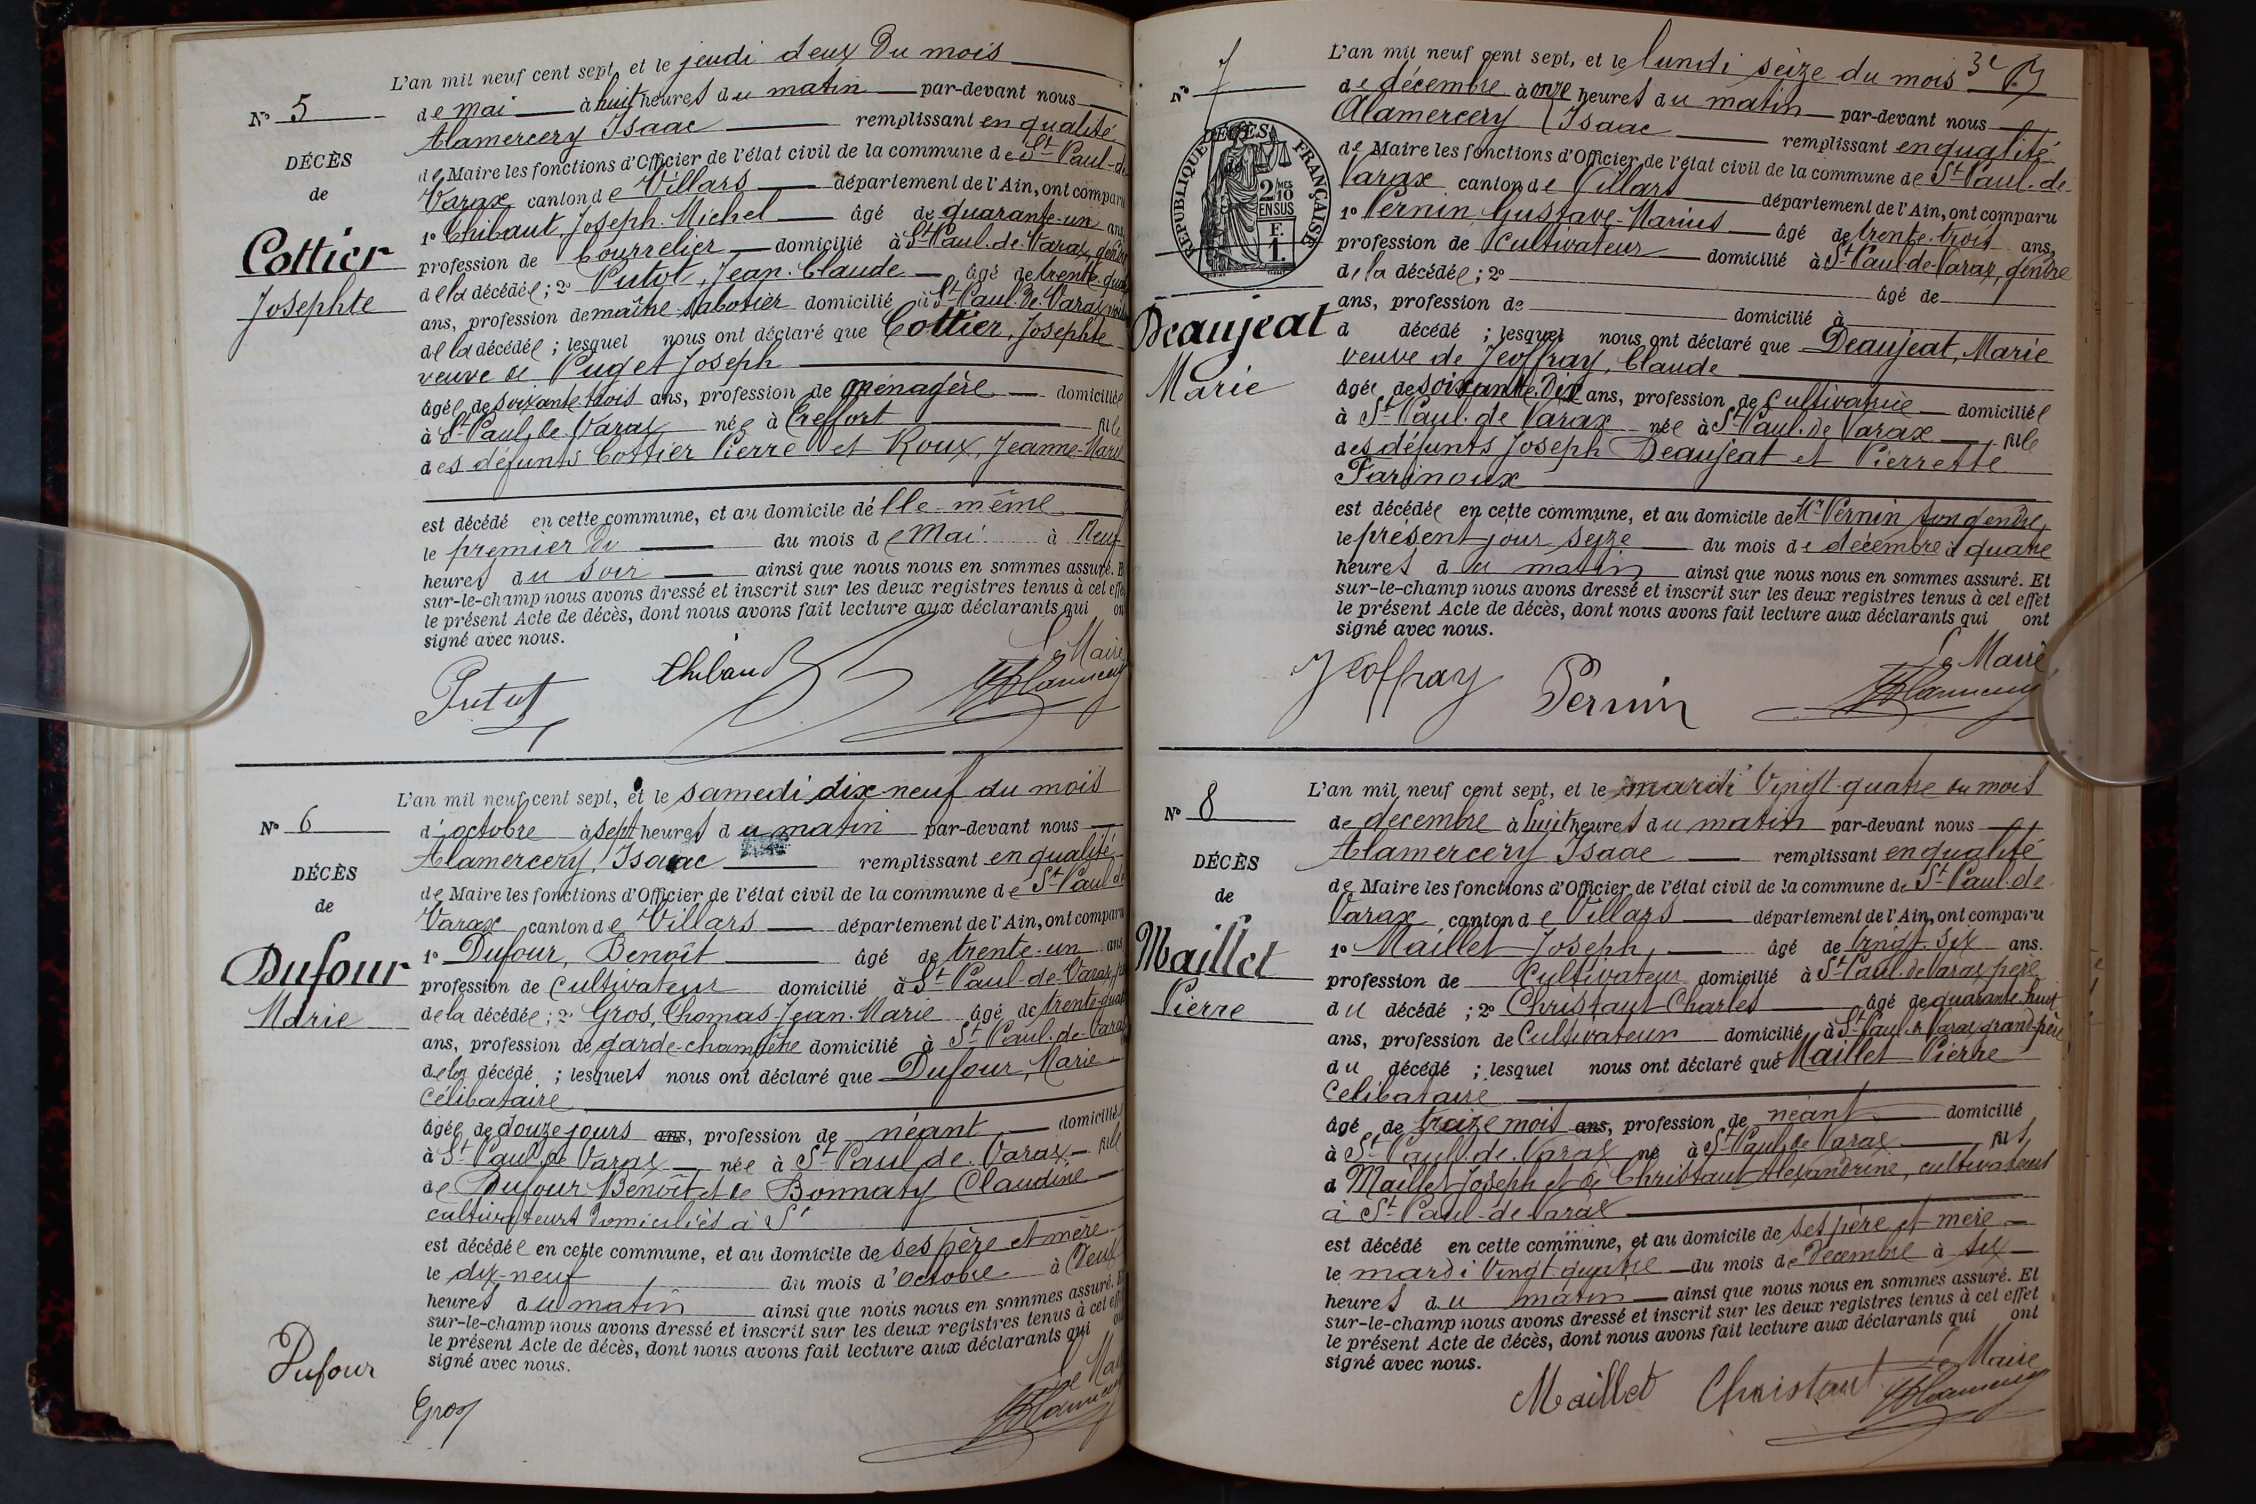 L'an mil neuf cent sept, et le jeudi deux du mois
N° 5
de mai à huit heures du matin par-devant nous
Alamercery Isaac remplissant en qualité
DÉCÈS
de Maire les fonctions d'Officier de l'état civil de la commune de St Paul-de
de
Varax canton de Villars département de l'Ain, ont comparu
1° Thibaut, Joseph-Michel âgé de quarante-un ans,
Cottier
profession de bourrelier domicilié à St Paul-de-Varax, gendre
de la décédée ; 2° Putot, Jean-Claude âgé de trente-quatre
Josephte
ans, profession de maître sabotier domicilié à St Paul-de-Varax, voisin
de la décédée ; lesquel nous ont déclaré que Cottier, Josephte
veuve de Puget Joseph
âgée de soixante trois ans, profession de ménagère domiciliée
à St Paul de Varax née à Treffort fille
des défunts Cottier Pierre et Roux, Jeanne-Marie
est décédé en cette commune, et au domicile d'elle-même
le premier du du mois de Mai à Neuf
heures du soir ainsi que nous nous en sommes assuré. Et
sur-le-champ nous avons dressé et inscrit sur les deux registres tenus à cet effet
le présent Acte de décès, dont nous avons fait lecture aux déclarants qui ont
signé avec nous.
Le Maire
Putot Thibaud
L'an mil neuf cent sept, et le samedi dix-neuf du mois
N° 6
d'octobre à sept heures du matin par-devant nous
Alamercery, Isaac remplissant en qualité
DÉCÈS
de Maire les fonctions d'Officier de l'état civil de la commune de St Paul de
de
Varax canton de Villars département de l'Ain, ont comparu
1° Dufour, Benoît âgé de trente-un ans
Dufour
profession de cultivateur domicilié à St Paul-de-Varax, père
Marie
de la décédée ; 2° Gros, Thomas-Jean-Marie âgé de trente-quatre
ans, profession de garde-champêtre domicilié à St Paul-de-Varax
de la décédé ; lesquels nous ont déclaré que Dufour, Marie
célibataire
âgée de douze jours ans, profession de néant domiciliée
à St Paul de Varax née à St Paul de Varax fille
de Dufour Benoît et de Bonnaty Claudine
cultivateurs domiciliés à St
est décédée en cette commune, et au domicile de ses père et mère
le dix-neuf du mois d'octobre à Deux
heures du matin ainsi que nous nous en sommes assuré. Et
sur-le-champ nous avons dressé et inscrit sur les deux registres tenus à cet effet
le présent Acte de décès, dont nous avons fait lecture aux déclarants qui ont
signé avec nous.
Le Maire
Dufour
Gros
L'an mil neuf cent sept, et le lundi seize du mois
3e
N° 7
de décembre à onze heures du matin par-devant nous
Alamercery Isaac remplissant en qualité
DÉCÈS
RÉPUBLIQUE FRANÇAISE
2/10 MES EN SUS
F. 1.
de Maire les fonctions d'Officier de l'état civil de la commune de St Paul-de
Varax canton de Villars département de l'Ain, ont comparu
1° Pernin Gustave-Marius âgé de trente-trois ans,
profession de cultivateur domicilié à St Paul-de-Varax, gendre
de la décédée ; 2° âgé de
ans, profession de domicilié à
Deaujeat
d décédé ; lesquel nous ont déclaré que Deaujeat, Marie
Marie
veuve de Jeoffray, Claude
âgée de soixante-dix ans, profession de cultivatrice domiciliée
à St Paul-de Varax née à St Paul-de Varax fille
des défunts Joseph Deaujeat et Pierrette
Farinoux
est décédée en cette commune, et au domicile de Mr Pernin son gendre,
le présent jour seize du mois de décembre à quatre
heures du matin ainsi que nous nous en sommes assuré. Et
sur-le-champ nous avons dressé et inscrit sur les deux registres tenus à cet effet
le présent Acte de décès, dont nous avons fait lecture aux déclarants qui ont
signé avec nous.
Le Maire
Jeoffray Pernin
L'an mil neuf cent sept, et le mardi vingt-quatre du mois
N° 8
de décembre à huit heures du matin par-devant nous
Alamercery Isaac remplissant en qualité
DÉCÈS
de Maire les fonctions d'Officier de l'état civil de la commune de St Paul-de
de
Varax canton de Villars département de l'Ain, ont comparu
1° Maillet Joseph, âgé de vingt-six ans.
Maillet
profession de Cultivateur domicilié à St Paul-de Varax père
Pierre
du décédé ; 2° Christaut Charles âgé de quarante-huit
ans, profession de Cultivateur domicilié à St Paul de Varax grand-père
du décédé ; lesquel nous ont déclaré que Maillet Pierre
Célibataire
âgé de treize mois ans, profession de néant domicilié
à St Paul-de-Varax né à St Paul de Varax fils
d Maillet Joseph et de Christaut Alexandrine, cultivateurs
à St Paul-de-Varax
est décédé en cette commune, et au domicile de ses père et mère
le mardi vingt quatre du mois de Décembre à six
heures du matin ainsi que nous nous en sommes assuré. Et
sur-le-champ nous avons dressé et inscrit sur les deux registres tenus à cet effet
le présent Acte de décès, dont nous avons fait lecture aux déclarants qui ont
signé avec nous.
Le Maire
Maillet Christaut